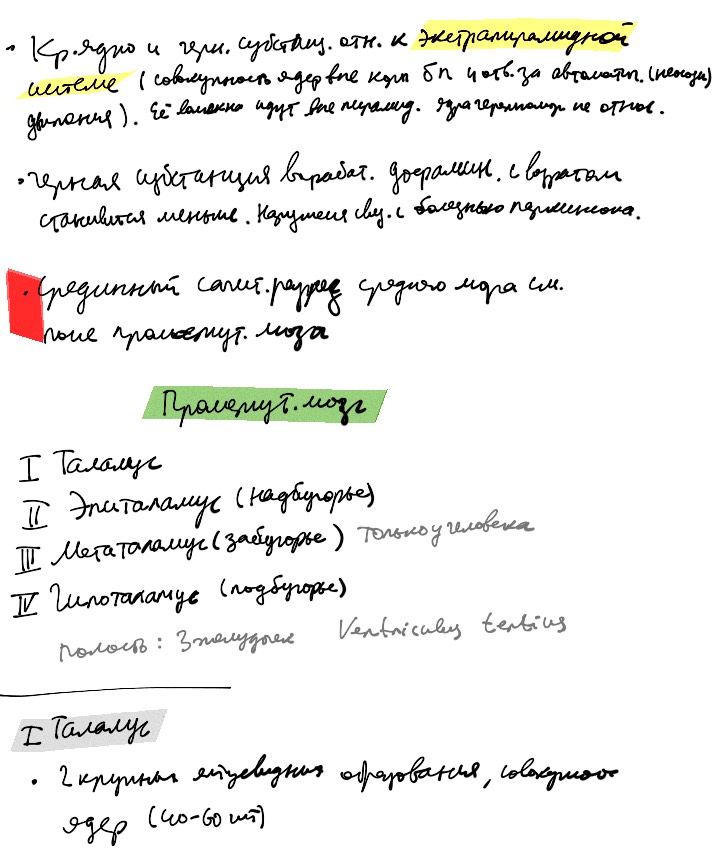 · Кр. ядро и черн. субстанц. отн. к экстрапирамидной
системе (совокупность ядер вне коры БП и отв. за автоматич. (неосозн)
движения). Её волокна идут вне пирамид. Ядра не относ.
· Черная субстанция выработ. дофамин. С возрастом
становится меньше. Наруmения св. с болезнью паркинсона.
· Срединный сагит. разрез среднего мозга см.
после промежут. мозга
Промежут. мозг
I Таламус
II Эпиталамус (надбугорье)
III Метаталамус (забугорье) только у человека
IV Гипоталамус (подбугорье)
полость: 3 желудочек Ventriculus tertius
I Таламус
· 2 крупных яйцевидных образования, совокупность
ядер (40-60 шт)